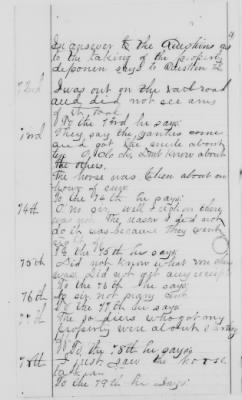 In answer to the Questions as
to the taking of the property
deponent says to Question 72
72nd I was out on the rail road
and did not see any
of it, took
To the 73rd he says
73rd They say the Yankies come
and got the mule about
ten O, clock, Dont know about
the others.
The horse was taken about an
hour of sun
To the 74th he says.
74th O, no sir, will
The reason I did not
do it was because they went
To the 75th he says
75th Did not know what
was. Did not get any receipt
To the 76th he says
76th No sir, not many
To the 77th he says
77th The soldiers who got my
property were about
To the 78th he says
78th I just saw the horse
taken
To the 79th he says